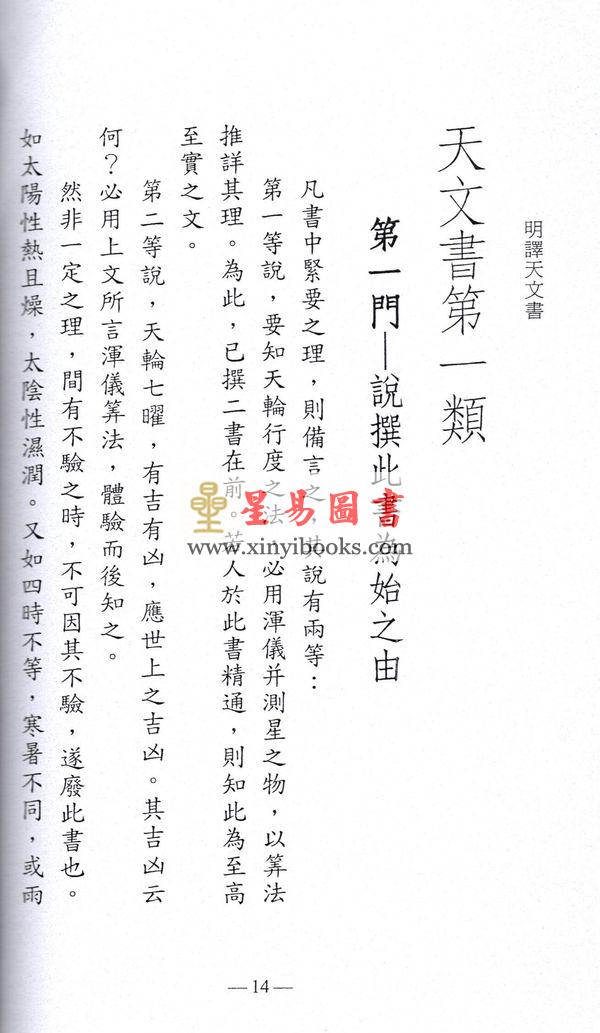 明譯天文書
天文書第一類
第一門—說撰此書為始之由
凡書中緊要之理，則備言之，其說有兩等：
第一等說，要知天輪行度之法，必用渾儀并測星之物，以筭法
推詳其理。為此，已撰二書在前。若人於此書精通，則知此為至高
至實之文。
第二等說，天輪七曜，有吉有凶，應世上之吉凶。其吉凶云
何？必用上文所言渾儀筭法，體驗而後知之。
然非一定之理，間有不驗之時，不可因其不驗，遂廢此書也。
如太陽性熱且燥，太陰性濕潤。又如四時不等，寒暑不同，或雨
星易圖書
www.xinyibooks.com
—14—